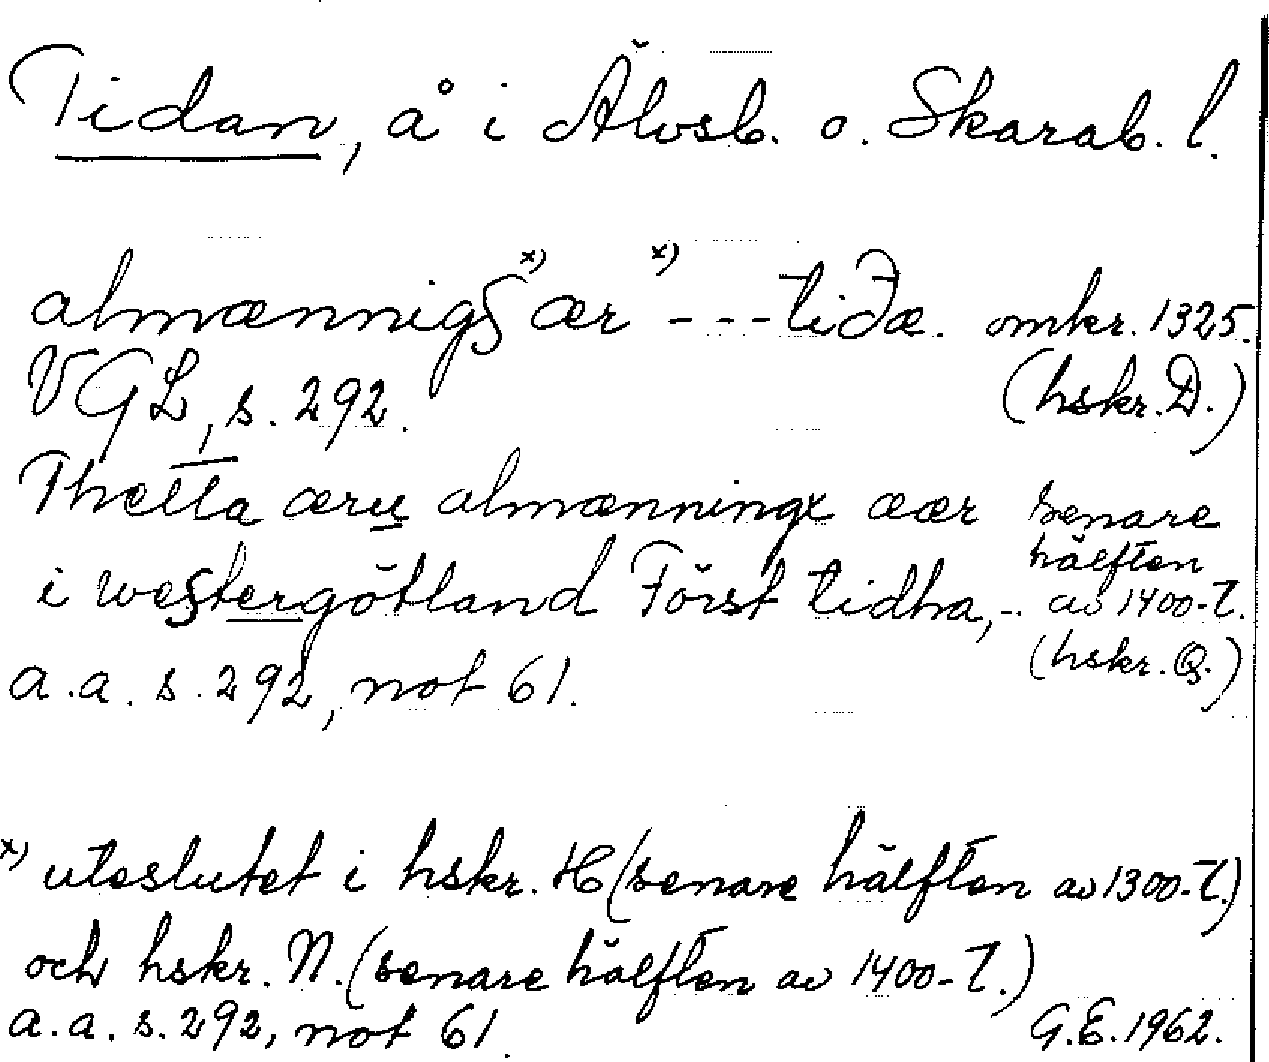 Tidan, å i Älvsb. o. Skarab. l.
almænnigs x) ær x) - - - tiðæ. omkr. 1325.
VGL, s. 292. (hskr. D.)
Thetta æru almænningx aær senare
hälften
i westergötland Först tidha, - . av 1400-t.
(hskr. Q.)
a.a. s. 292, not 61.
x) uteslutet i hskr. H (senare hälften av 1300-t.)
och hskr. N. (senare hälften av 1400-t.)
a.a. s. 292, not 61. G.E. 1962.